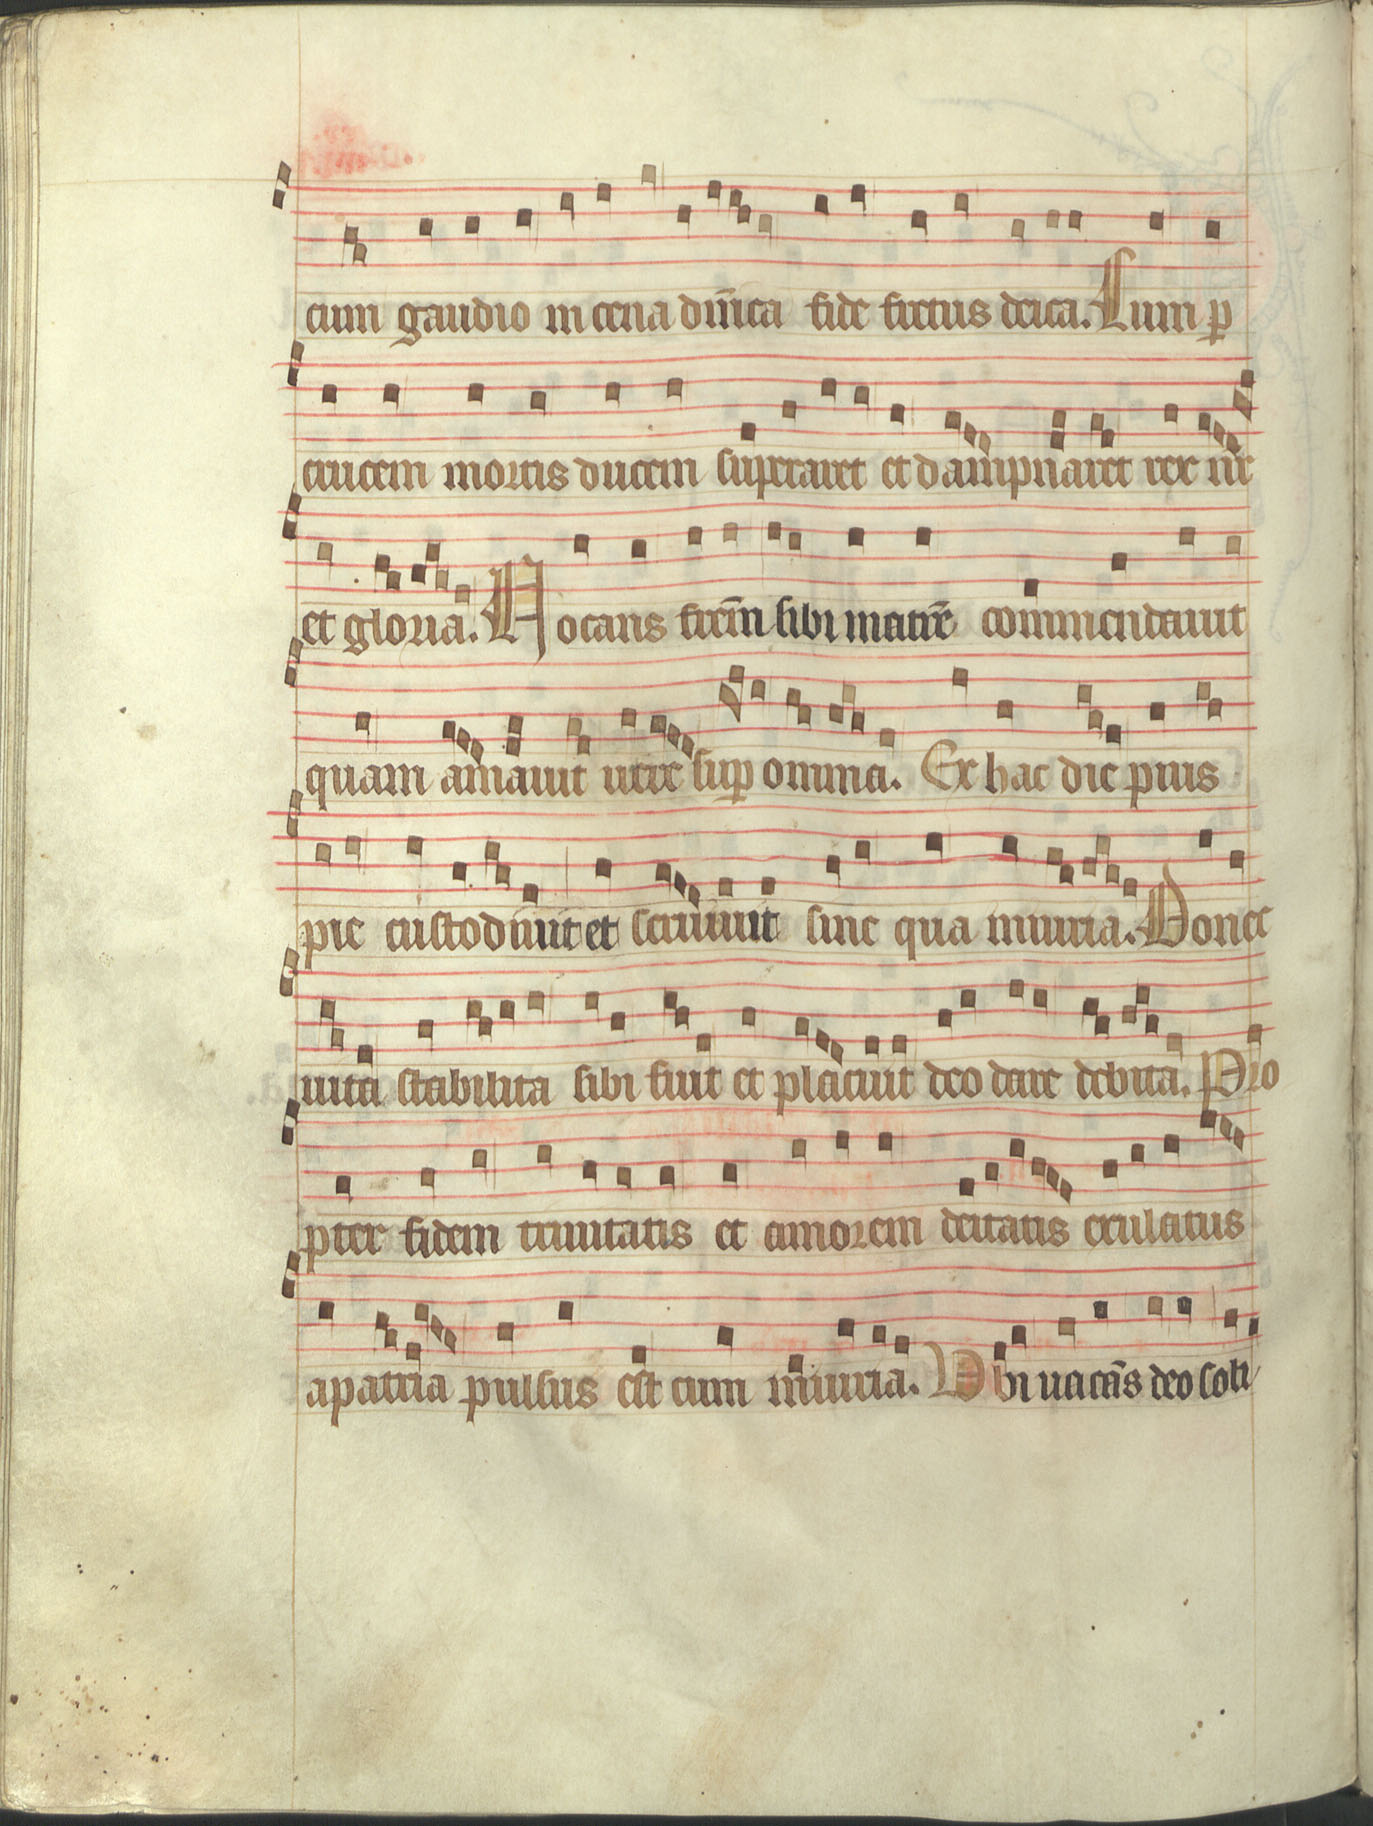 cum gaudio in cena dn̄ica fide fretus deica. Cum ꝑ
crucem mortis ducem superaret et dampnaret rex nr̄e
et gloria. Uocans frem̄ sibi matrē commendauit
quam amauit uere suꝑ omnia. Ex hac die pius
pie custodiuit et seruiuit sine qua iniuria. Donec
uita stabilita sibi fuit et placuit deo dare debita. Pro
pter fidem trinitatis et amorem deitatis exulatus
a patria pulsus est cum iniuria. Vbi uacās deo soli